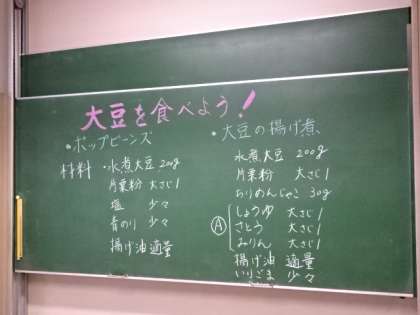 大豆を食べよう!
・ポップビーンズ
材料 ・水煮大豆 200g
片栗粉 大さじ1
塩 少々
青のり 少々
揚げ油 適量
・大豆の揚げ煮
水煮大豆 200g
片栗粉 大さじ1
ちりめんじゃこ 30g
Ⓐ しょうゆ 大さじ1
さとう 大さじ1
みりん 大さじ1
揚げ油 適量
いりごま 少々